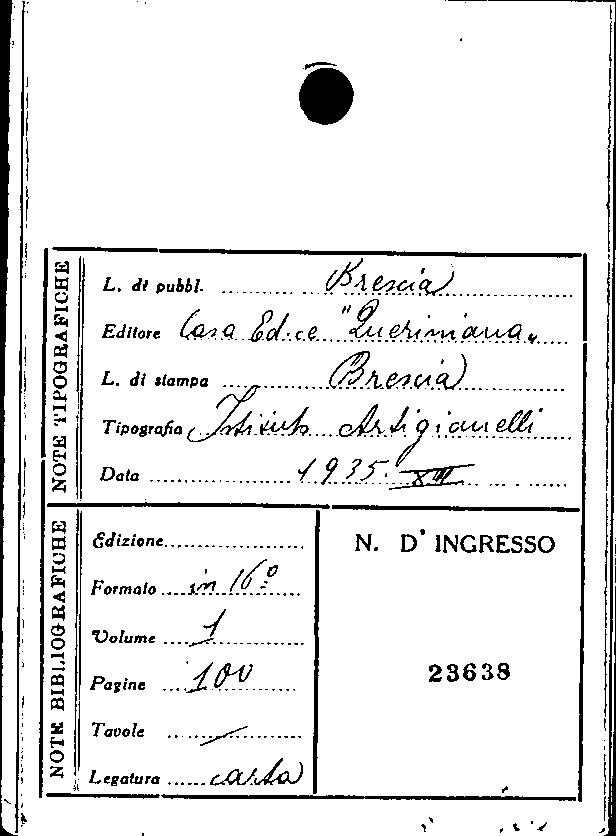 NOTE TIPOGRAFICHE
L. di pubbl. Brescia
Editore Casa Ed.ce "Queriniana„
L. di stampa Brescia
Tipografia Istituto Artigianelli
Data 1935. XIII
NOTE BIBLIOGRAFICHE
Edizione
Formato in 16º
Volume 1
Pagine 100
Tavole /
Legatura carta
N. D'INGRESSO
23638